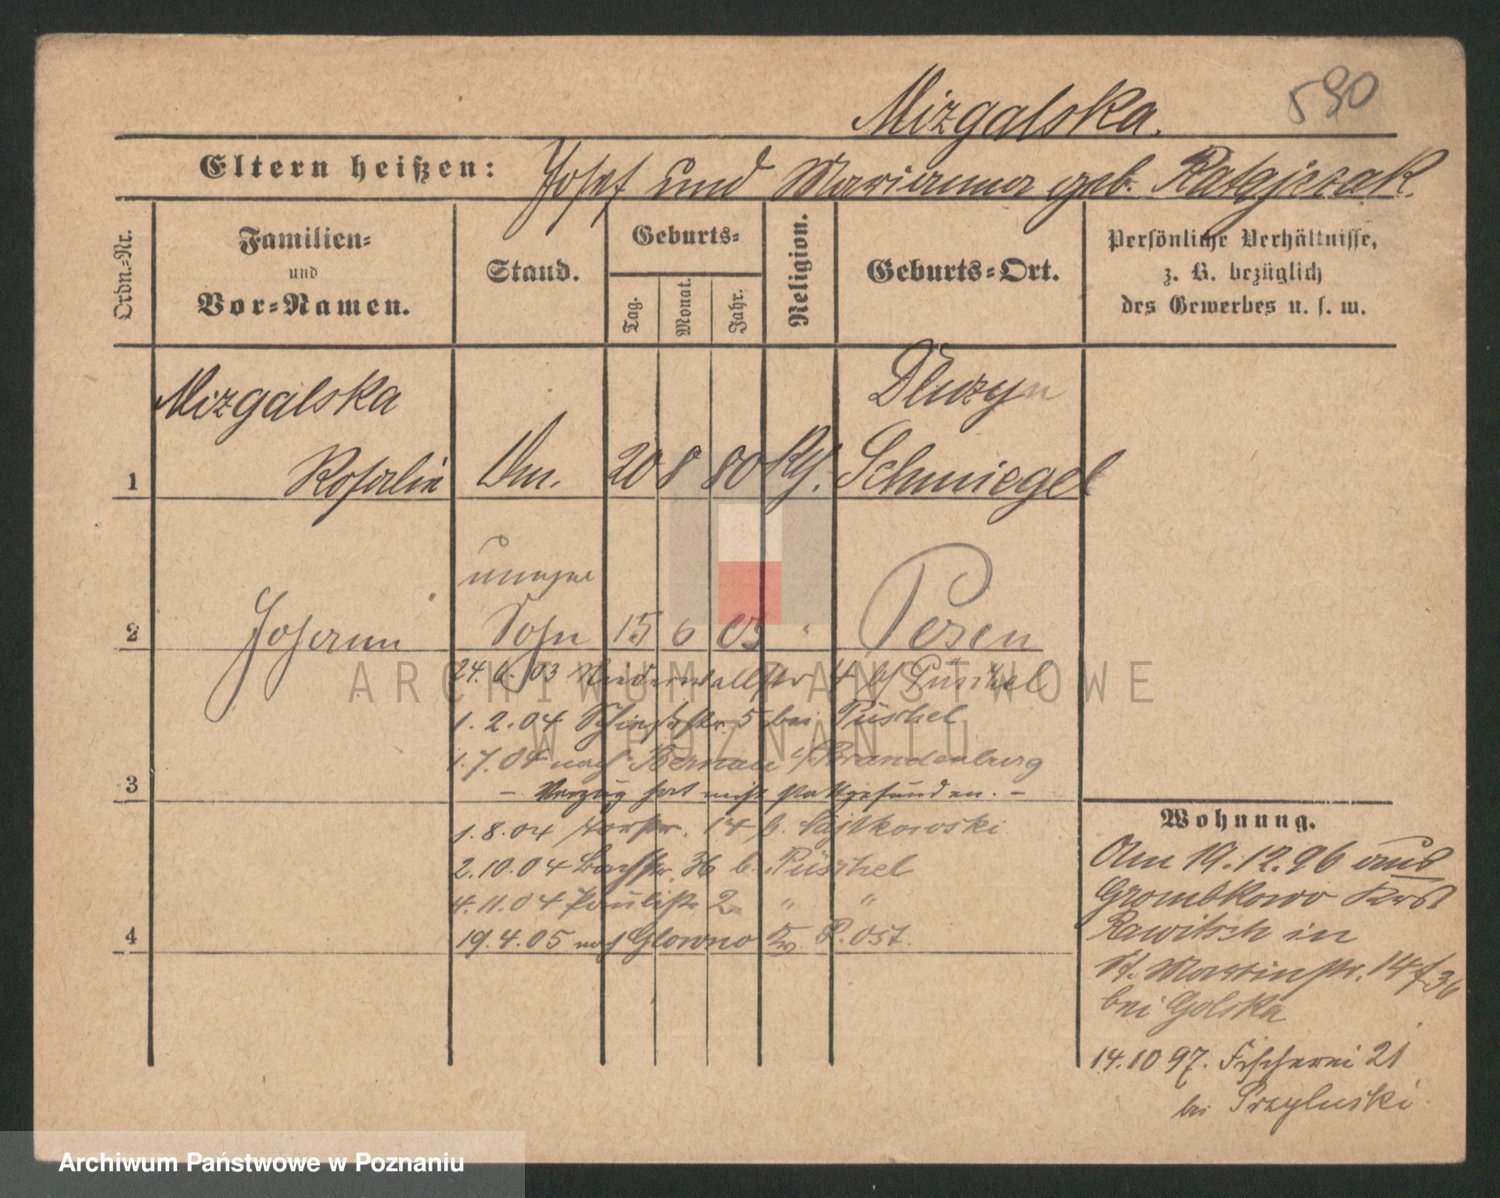 590
Mizgalska.
Eltern heißen: Josef und Marianna geb. Ratajczak
Ordn.-Nr.
Familien-
und
Vor-Namen.
Stand.
Geburts-
Tag.
Monat.
Jahr.
Religion.
Geburts-Ort.
Persönliche Verhältnisse,
z. B. bezüglich
des Gewerbes u. s. w.
Mizgalska Dluzyn
1 Rosalie 20 8 80 Schmiegel
2 Johann Sohn 15 6 03 Posen
24. 6. 03 Niederwallstr 4 b/ Püschel
1. 2. 04 5 bei Püschel
1. 7. 04 nach Bernau b/ Brandenburg
3 – Verzug hat nicht stattgefunden. –
1. 8. 04 14 b.
2. 10. 04 Bachstr. 36 b. Püschel
4. 11. 04 Paulistr 2 " "
4 19. 4. 05 nach Glowno P. Ost.
Wohnung.
Am 19. 12. 96 aus
Grombkowo
Rawitsch in
St. Martinstr. 14
bei Golska
14. 10 97. Fischerei 21
bei Przyluski
ARCHIWUM PAŃSTWOWE
W POZNANIU
Archiwum Państwowe w Poznaniu